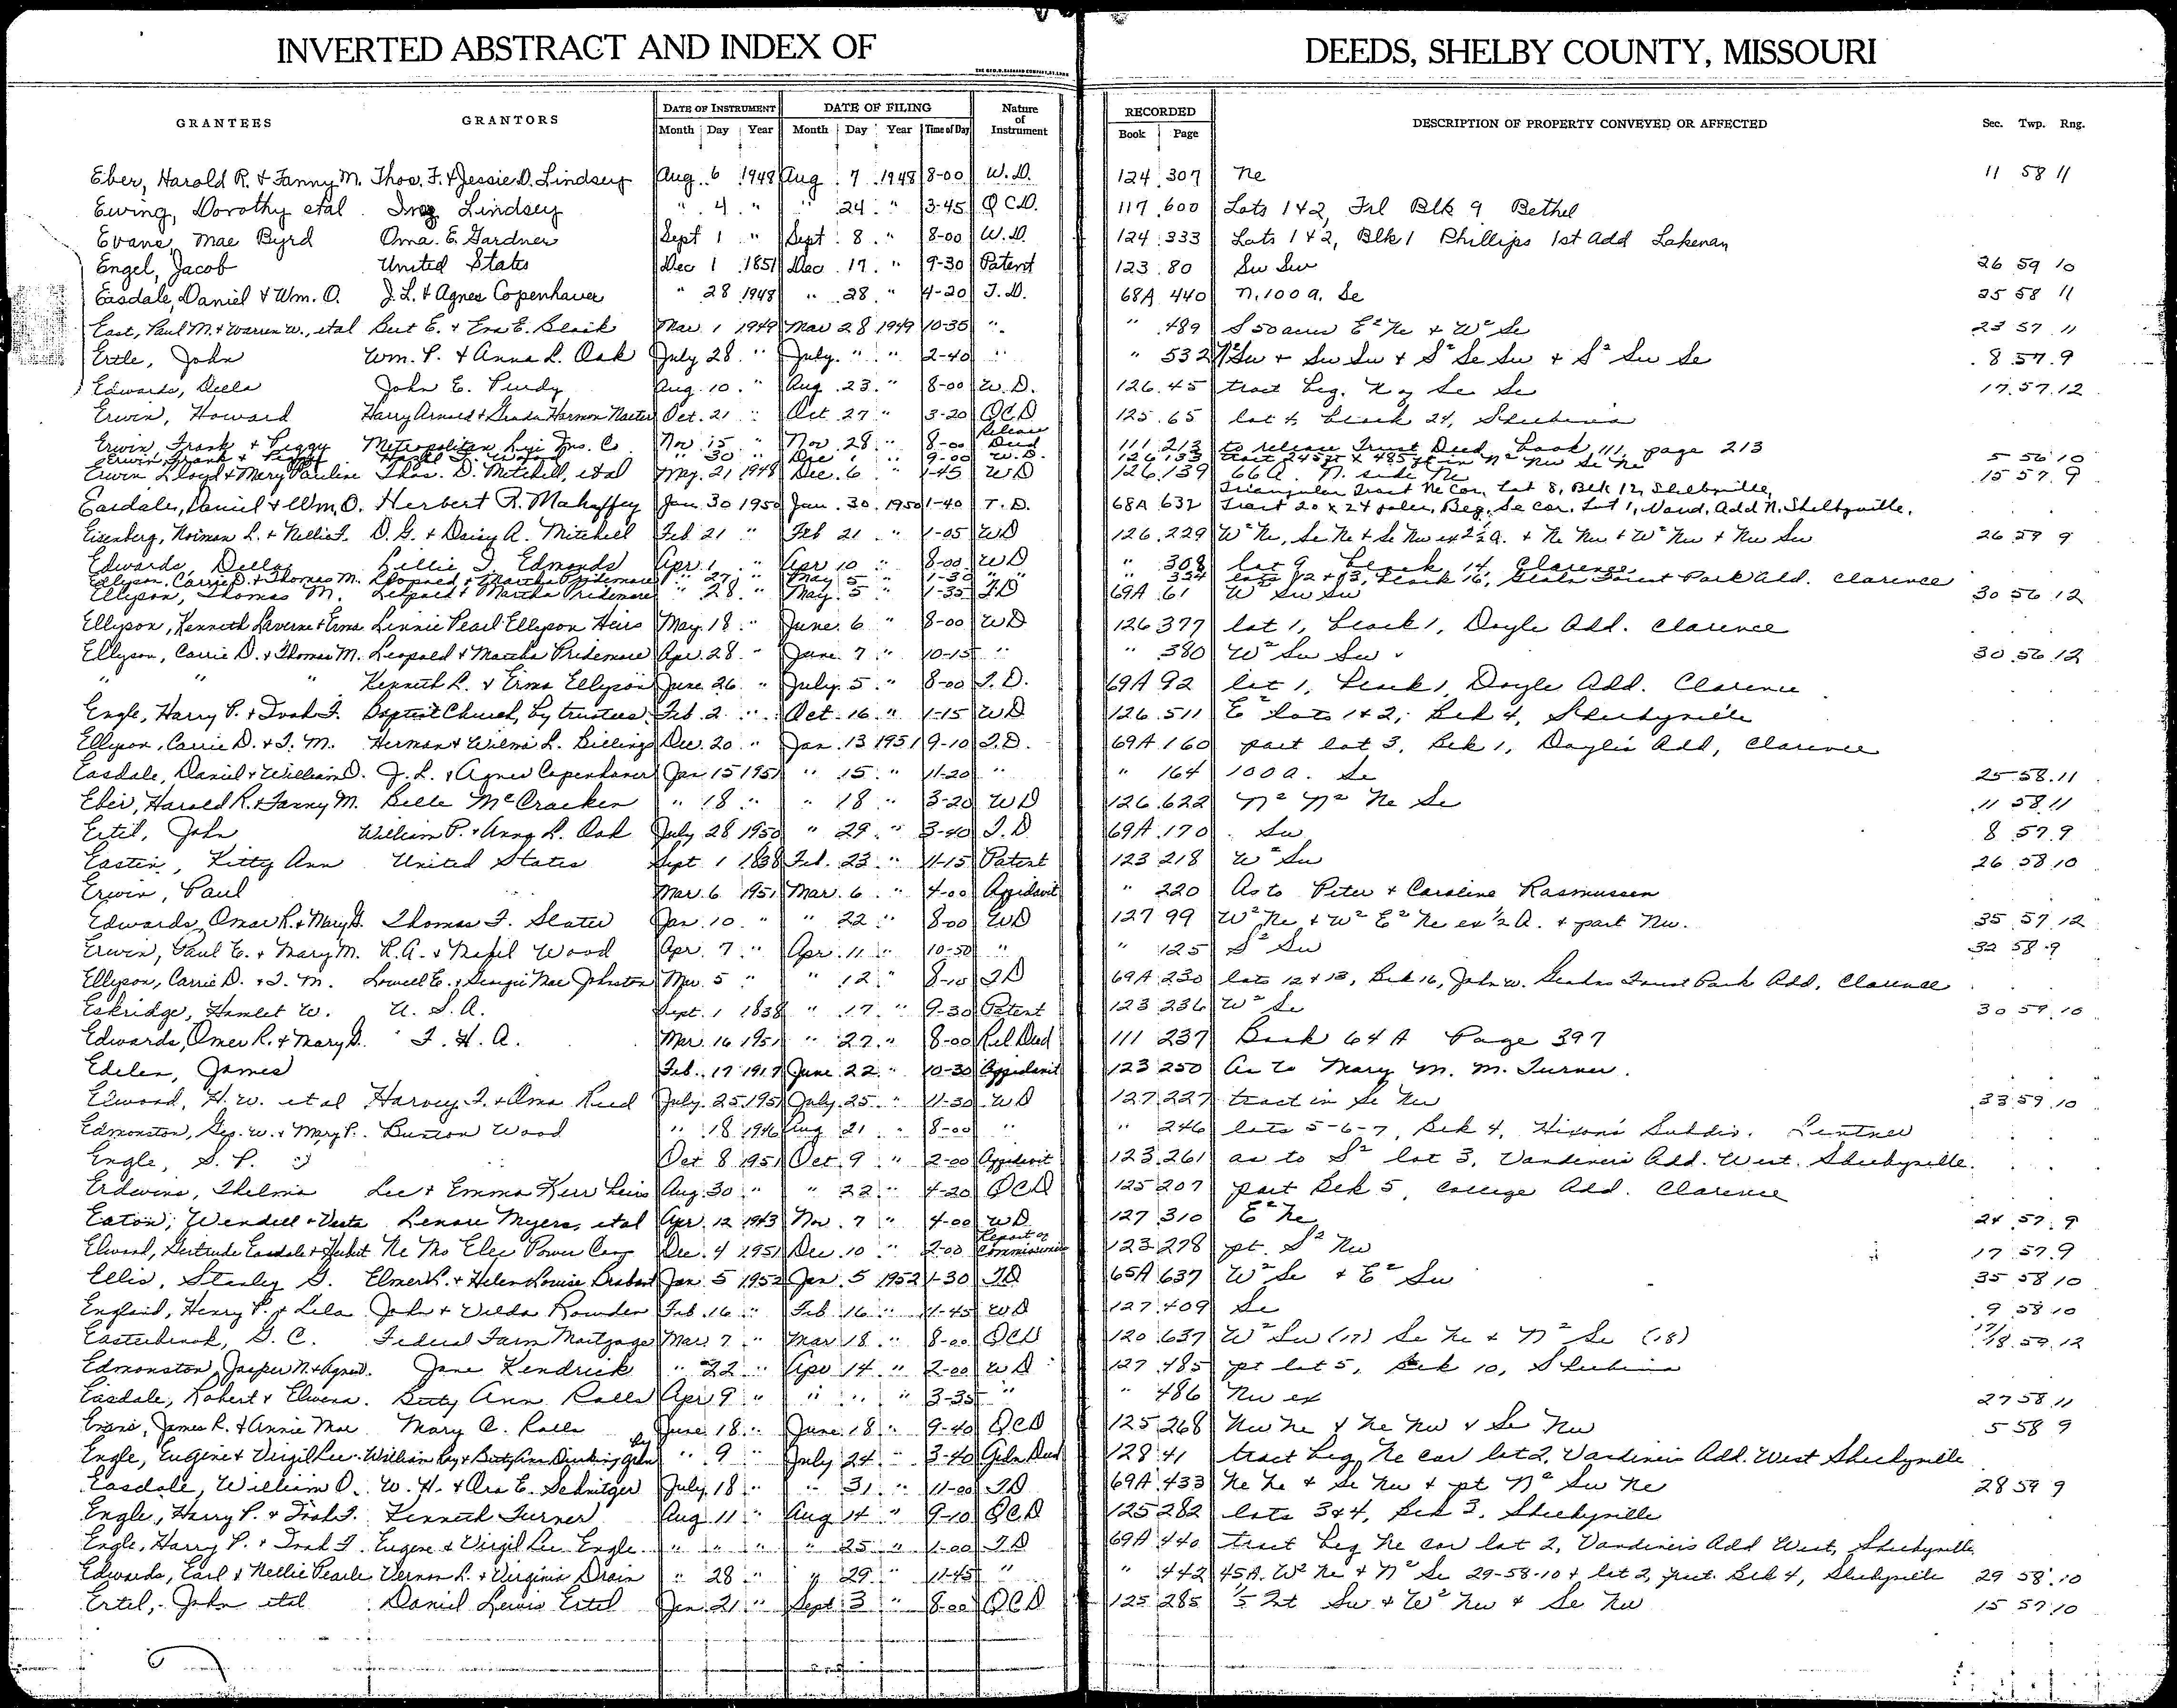 INVERTED ABSTRACT AND INDEX OF DEEDS, SHELBY COUNTY, MISSOURI
GRANTEES GRANTORS DATE OF INSTRUMENT DATE OF FILING Nature of Instrument RECORDED DESCRIPTION OF PROPERTY CONVEYED OR AFFECTED Sec. Twp. Rng.
Month Day Year Month Day Year Time of Day Book Page
Eber, Harold R. & Fanny M. Thos. F. & Jessie D. Lindsey Aug. 6 1948 Aug. 7 1948 8-00 W.D. 124 307 Ne 11 58 11
Ewing, Dorothy etal Inez Lindsey " 4 " " 24 " 3-45 QCD. 117 600 Lots 1 & 2, Frl Blk 9 Bethel
Evans, Mae Byrd Oma. E. Gardner Sept 1 " Sept. 8 " 8-00 W.D. 124 333 Lots 1 & 2, Blk 1 Phillips 1st Add Lakenan
Engel, Jacob United States Dec 1 1851 Dec 17 " 9-30 Patent 123 80 Sw Sw 26 59 10
Easdale, Daniel & Wm. O. J. L. & Agnes Copenhaver " 28 1948 " 28 " 4-20 T.D. 68A 440 N. 100 a. Se 25 58 11
East, Paul M. & Warren W., etal Bert E. & Eva E. Black Mar 1 1949 Mar 28 1949 10-35 " " 489 S 50 acres E² Ne & W² Se 23 57 11
Ertle, John Wm. P. & Anna L. Oak July 28 " July " " 2-40 " " 532 N² Sw & Sw Sw & S² Se Sw & S² Sw Se 8 57 9
Edwards, Della John E. Purdy Aug. 10 " Aug. 23 " 8-00 W.D. 126 45 tract beg. N of Se Se 17 57 12
Erwin, Howard Harry Arnold & Harmon Oct. 21 " Oct 27 " 3-20 QCD 125 65 lot 4, block 24, Shelbina
Erwin, Frank & Peggy Metropolitan Life Ins. Co Nov 15 " Nov. 28 " 8-00 Release Deed 111 213 to release Trust Deed, book 111, page 213
Erwin Frank & Peggy " 30 " Dec " 9-00 W.D. 126 133 tract 245 ft x 485 ft in N² Nw Se Ne 5 56 10
Erwin Lloyd & Mary Pauline Thos. D. Mitchell, etal May 21 1948 Dec. 6 " 1-45 WD 126 139 66 a. N. side Ne 15 57 9
Easdale, Daniel & Wm. O. Herbert R. Mahaffey Jan. 30 1950 Jan. 30 1950 1-40 T.D. 68A 632 Triangular Tract Ne Cor. Lot 8, Blk 12, Shelbyville,
Tract 20 x 24 poles, Beg. Se cor. Lot 1, Vand. Add N. Shelbyville.
Eisenberg, Norman L. & Nellie F. D. G. & Daisy A. Mitchell Feb 21 " Feb 21 " 1-05 WD 126 229 W² Ne, Se Ne & Se Nw ex 2½ a. & Ne Nw & W² Nw & Nw Sw 26 59 9
Edwards, Della Lillie I. Edmonds Apr. 1 " Apr 10 " 8-00 WD " 308 lot 9 block 14, Clarence
Ellyson, Carrie D. & Thomas M. Leopold & Martha Pridemore " 27 " May 5 " 1-30 " " 334 lots 12 & 13, block 16, Forest Park add. Clarence
Ellyson, Thomas M. Leopold & Martha Pridemore " 28 " May 5 " 1-35 TD 69A 61 W² Sw Sw 30 56 12
Ellyson, Kenneth Laverne & Erma Linnie Pearl Ellyson Heirs May 18 " June 6 " 8-00 WD 126 377 lot 1, block 1, Doyle Add. Clarence
Ellyson, Carrie D. & Thomas M. Leopold & Martha Pridemore Apr. 28 " June 7 " 10-15 " " 380 W² Sw Sw 30 56 12
" " " Kenneth L. & Erma Ellyson June 26 " July 5 " 8-00 T.D. 69A 92 lot 1, block 1, Doyle Add. Clarence
Engle, Harry P. & Irah F. Baptist Church, by trustees Feb. 2 " Oct. 16 " 1-15 WD 126 511 E² lots 1 & 2, Blk 4, Shelbyville
Ellyson, Carrie D. & T. M. Herman & Wilma L. Billings Dec. 20 " Jan. 13 1951 9-10 T.D. 69A 160 part lot 3, Blk 1, Doyle's Add, Clarence
Easdale, Daniel & William O. J. L. & Agnes Copenhaver Jan 15 1951 " 15 " 11-20 " " 164 100 a. Se 25 58 11
Eber, Harold R. & Fanny M. Belle McCracken " 18 " " 18 " 3-20 WD 126 622 N² N² Ne Se 11 58 11
Ertel, John William P. & Anna L. Oak July 28 1950 " 29 " 3-40 T.D 69A 170 Sw 8 57 9
Easten, Kitty Ann United States Sept 1 1838 Feb. 23 " 11-15 Patent 123 218 W² Sw 26 58 10
Erwin, Paul Mar. 6 1951 Mar. 6 " 4-00 Affidavit " 220 As to Peter & Caroline Rasmussen
Edwards, Omar R. & Mary G. Thomas F. Slater Jan 10 " " 22 " 8-00 WD 127 99 W² Ne & W² E² Ne ex ½ A. & part Nw. 35 57 12
Erwin, Paul E. & Mary M. R. A. & Wood Apr. 7 " Apr. 11 " 10-50 " " 125 S² Sw 32 58 9
Ellyson, Carrie D. & T. M. Lowell E. & Georgie Mae Johnston Mar. 5 " " 12 " 8-10 TD 69A 230 lots 12 & 13, Blk 16, John W. Forest Park Add, Clarence
Eskridge, Hamlet W. U. S. A. Sept. 1 1838 " 17 " 9-30 Patent 123 236 W² Se 30 59 10
Edwards, Omer R. & Mary G. F. H. A. Mar. 16 1951 " 27 " 8-00 Rel. Deed 111 237 Book 64 A Page 397
Edelen, James Feb. 17 1917 June 22 " 10-30 Affidavit 123 250 As to Mary M. M. Turner.
Elwood, H. W. etal Harvey F. & Oma Reed July 25 1951 July 25 " 11-30 WD 127 227 tract in Se Nw 33 59 10
Edmonston, Geo. W. & Mary P. Burton Wood " 18 1946 Aug 21 " 8-00 " " 246 lots 5-6-7, Blk 4, Hixon's Subdiv. Lentner
Engle, S. P. Oct 8 1951 Oct. 9 " 2-00 Affidavit 123 261 as to S² lot 3, Vandiver's Add. West. Shelbyville.
Erdwins, Thelma Lee & Emma Kerr heirs Aug. 30 " " 22 " 4-20 QCD 125 207 part Blk 5, College Add. Clarence
Eaton, Wendell & Vesta Lenore Myers, etal Apr. 12 1943 Nov. 7 " 4-00 WD 127 310 E² Ne 24 57 9
Elwood, Gertrude Easdale & Herbert Ne Mo Elec Power Co Dec. 4 1951 Dec. 10 " 2-00 Report of Commissioners 123 278 pt. S² Nw 17 57 9
Ellis, Stanley G. Elmer L. & Helen Louise Jan 5 1952 Jan. 5 1952 1-30 TD 65A 637 W² Se & E² Sw 35 58 10
England, Henry P. & Lela John & Velda Rowden Feb. 16 " Feb 16 " 11-45 WD 127 409 Se 9 58 10
Easterbrook, G. C. Federal Farm Mortgage Mar 7 " Mar 18 " 8-00 QCD 120 637 W² Sw (17) Se Ne & N² Se (18) 17/18 59 12
Edmonston, Jasper N. & Agnes. Jane Kendrick " 22 " Apr 14 " 2-00 WD 127 485 pt lot 5, Blk 10, Shelbina
Easdale, Robert & Elwena Betty Ann Ralls Apr 9 " " " " 3-35 " " 486 Nw ex 27 58 11
Evans, James R. & Annie Mae Mary C. Ralls June 18 " June 18 " 9-40 QCD 125 268 Nw Ne & Ne Nw & Se Nw 5 58 9
Engle, Eugene & Virgil Lee William Ray & Betty Ann by Gdn " 9 " July 24 " 3-40 Gdn Deed 128 41 tract beg. Ne cor lot 2, Vandivers Add. West Shelbyville
Easdale, William O. W. H. & Ora E. Schnitger July 18 " " 31 " 11-00 TD 69A 433 Ne Ne & Se Nw & pt N² Sw Ne 28 59 9
Engle, Harry P. & Irah F. Kenneth Turner Aug 11 " Aug 14 " 9-10 QCD 125 282 lots 3 & 4, Blk 3, Shelbyville
Engle, Harry P. & Irah F. Eugene & Virgil Lee Engle " " " " 25 " 1-00 TD 69A 440 tract beg Ne cor lot 2, Vandiver's Add West, Shelbyville
Edwards, Earl & Nellie Pearle Vernon L. & Virginia Drain " 28 " " 29 " 11-45 " " 442 45A. W² Ne & N² Se 29-58-10 & lot 2, Blk 4, Shelbyville 29 58 10
Ertel, John etal Daniel Lewis Ertel Jan. 21 " Sept 3 " 8-00 QCD 125 285 1/5 Int Sw & W² Nw & Se Nw 15 57 10